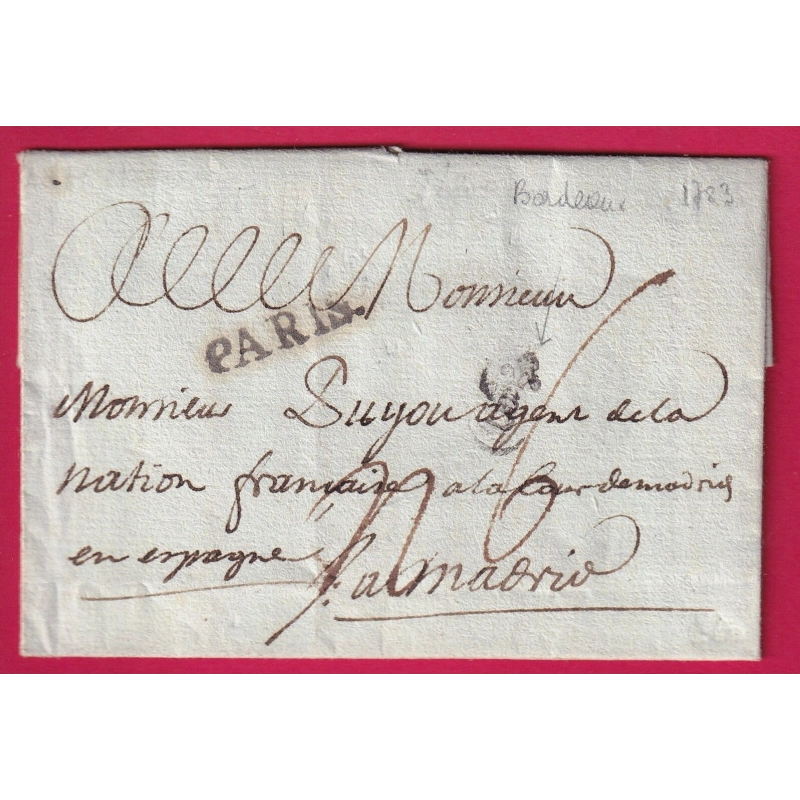 Bordeaux 1783
A Monsieur
PARIS.
Monsieur Duyou agent de la
nation française a la Cour de madrid
en espagne
a madrid